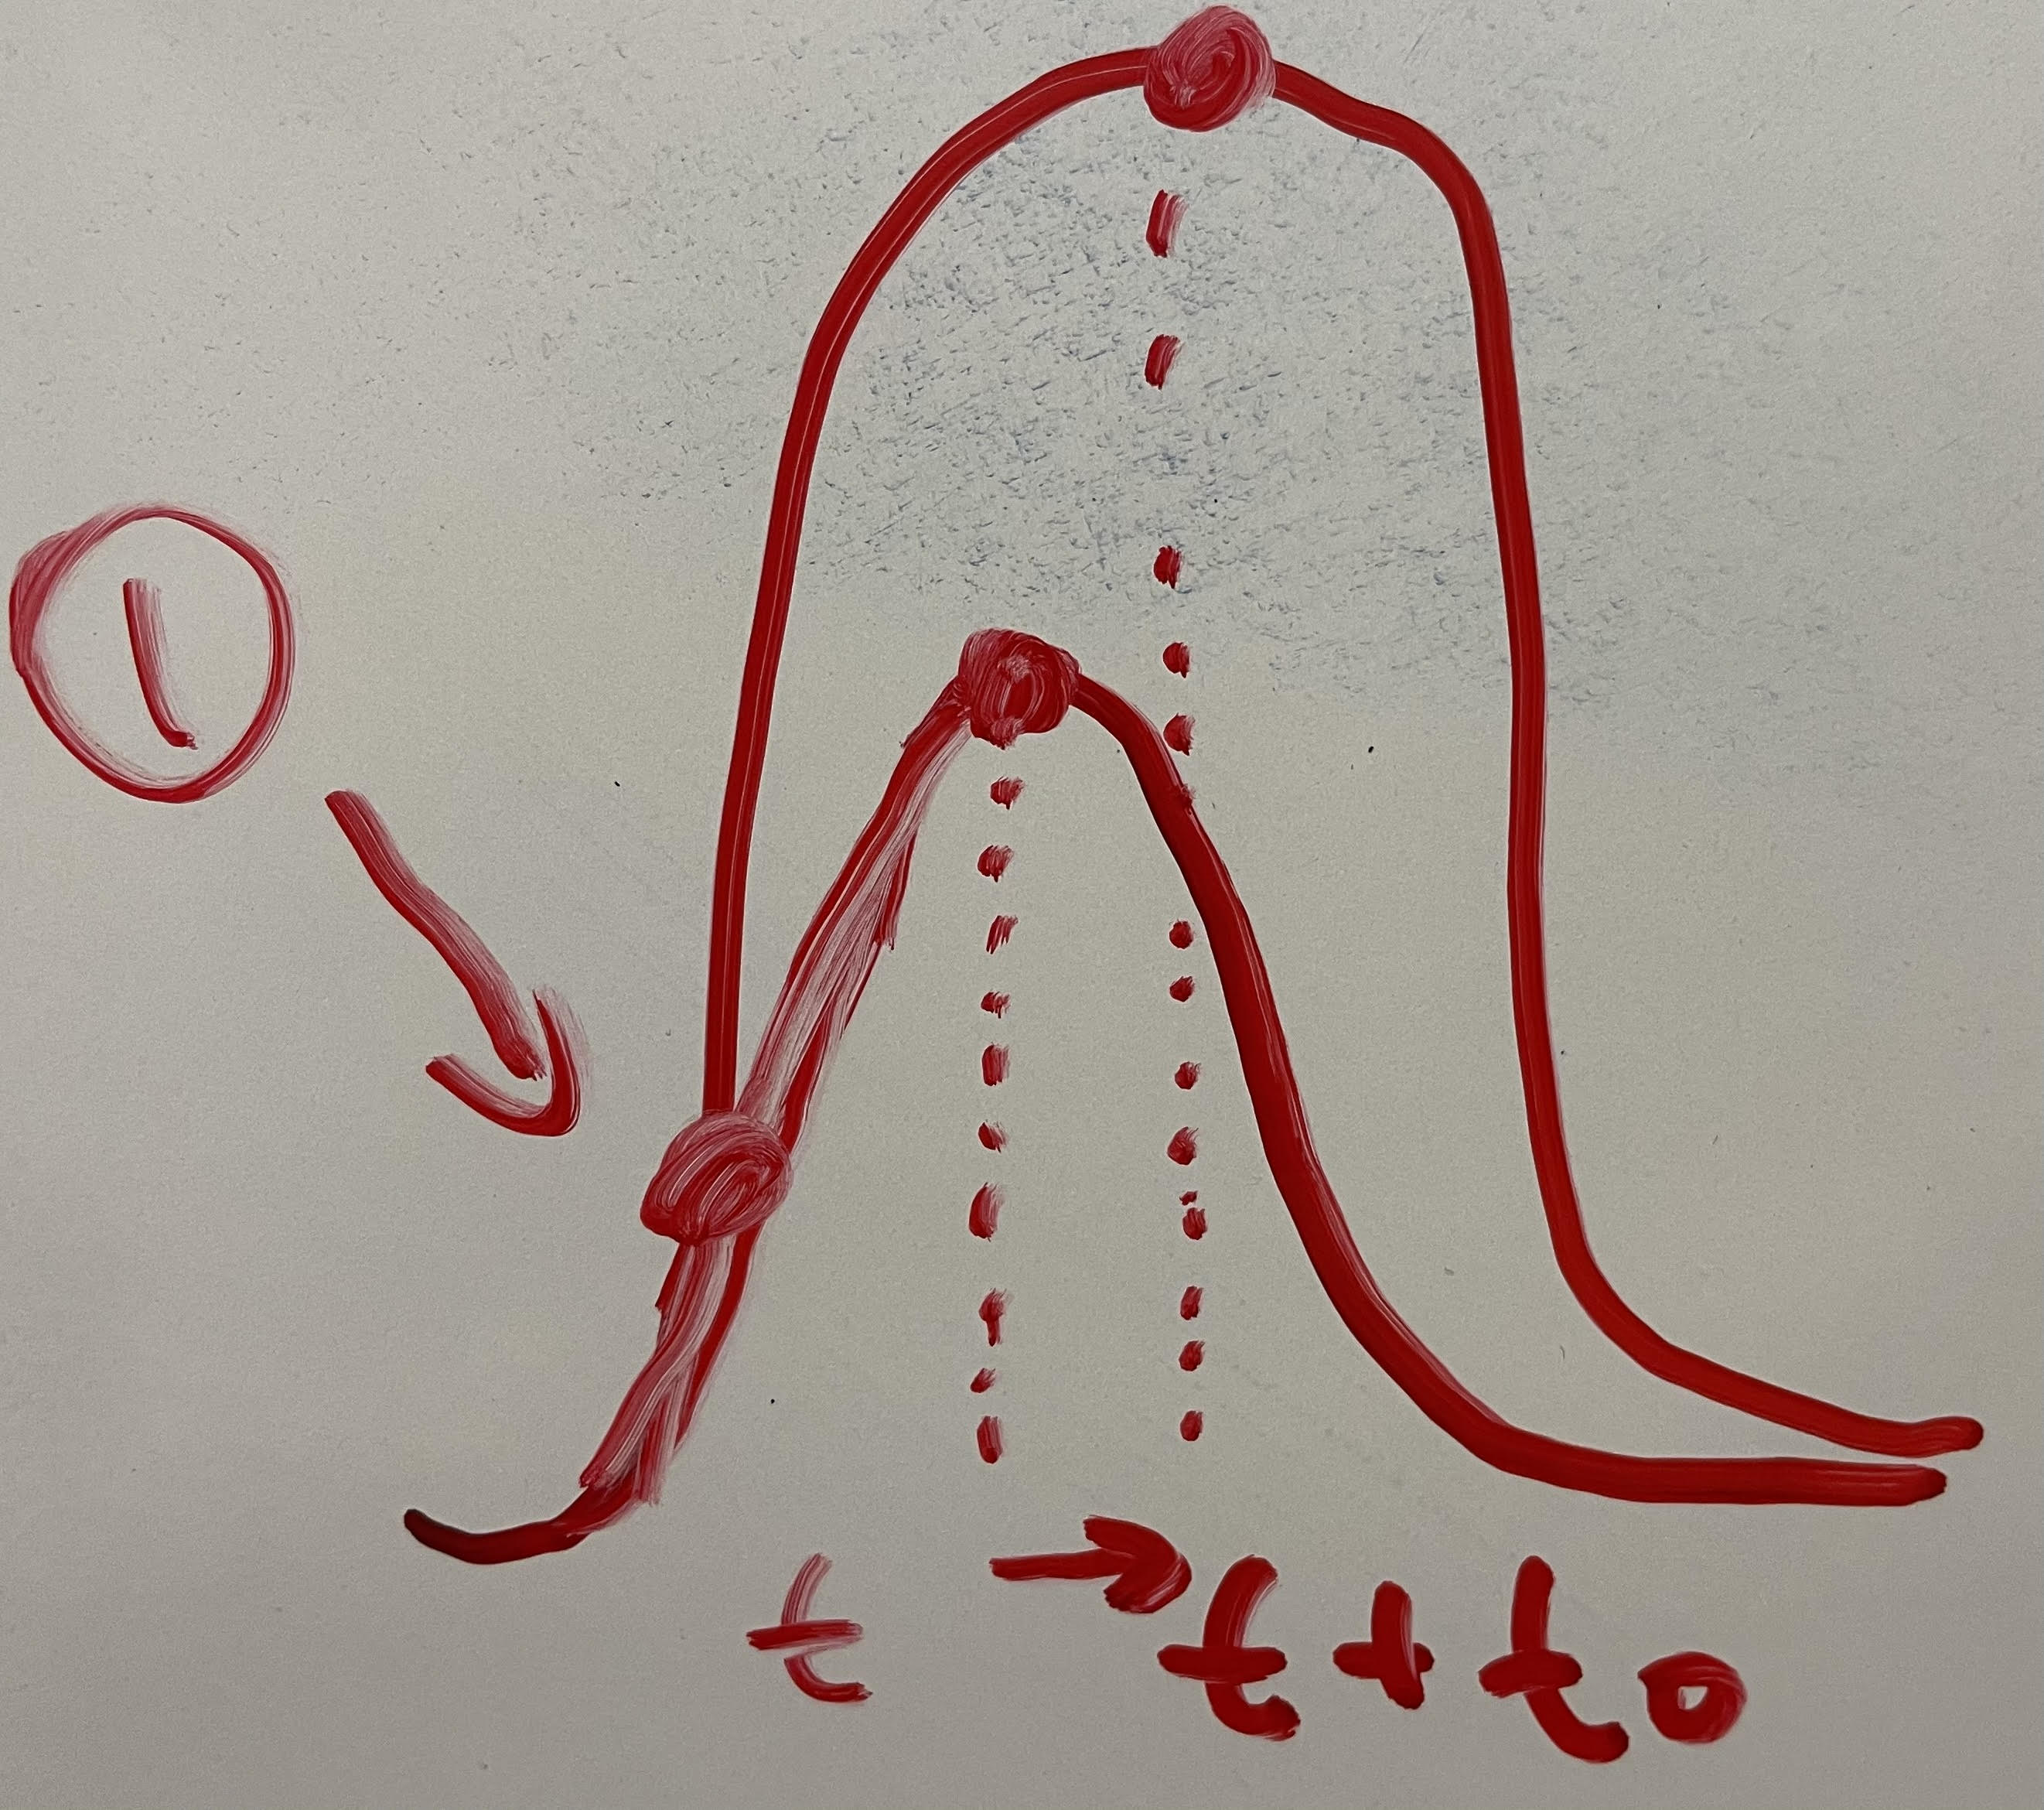 ①
t → t + t0